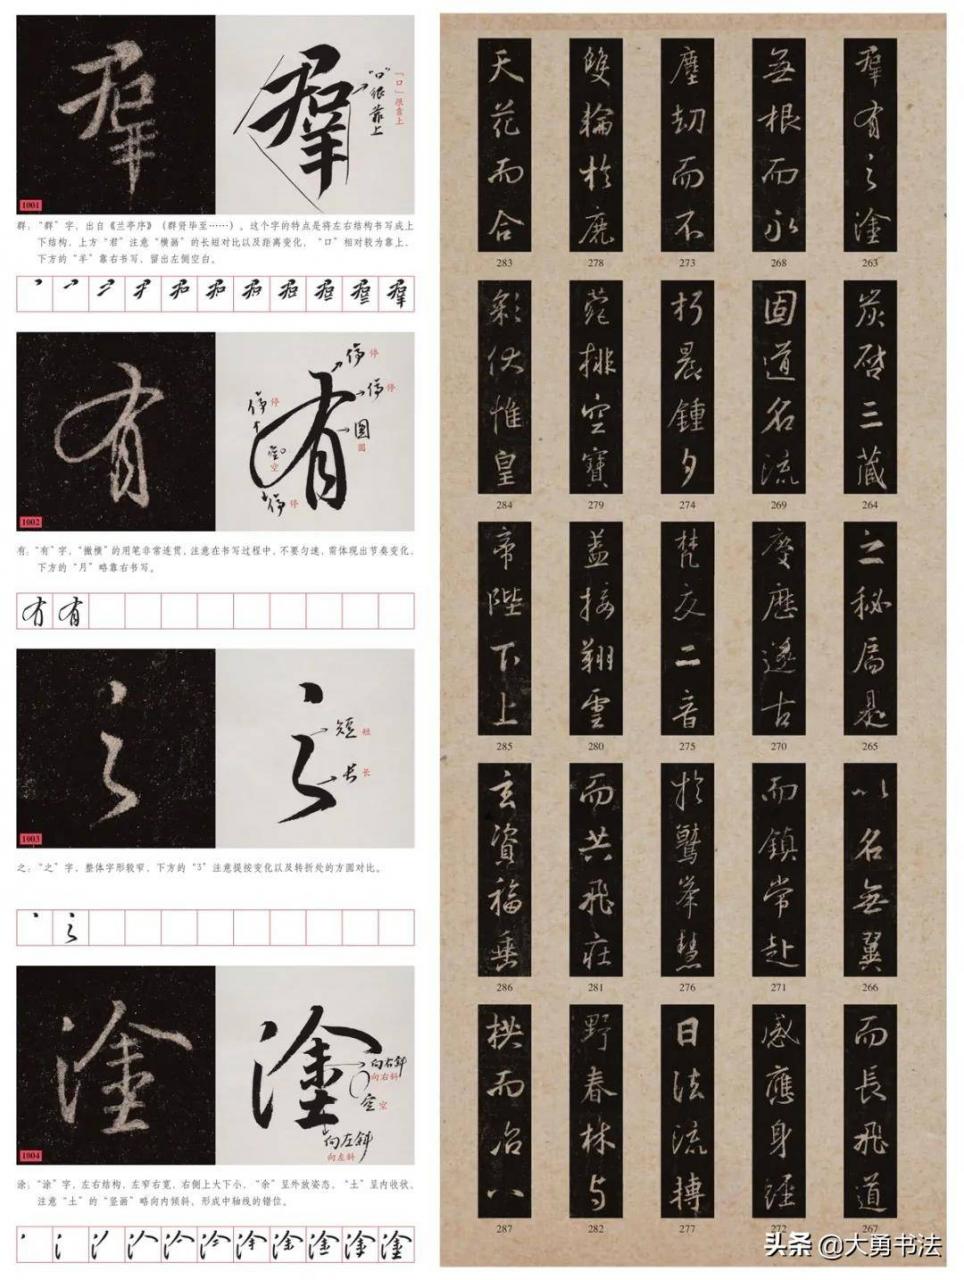 "口"很靠上
「口」很靠上
1001
群："群"字，出自《兰亭序》（群贤毕至……）。这个字的特点是将左右结构书写成上
下结构，上方"君"注意"横画"的长短对比以及距离变化，"口"相对较为靠上，
下方的"羊"靠右书写，留出左侧空白。
有
停 停
停 停
停 停
圆
圆
空
空
停 停
1002
有："有"字，"撇横"的用笔非常连贯，注意在书写过程中，不要匀速，需体现出节奏变化，
下方的"月"略靠右书写。
有 有
之
短 短
长 长
1003
之："之"字，整体字形较窄，下方的"3"注意提按变化以及转折处的方圆对比。
塗
向右斜
向右斜
空 空
向左斜
向左斜
1004
涂："涂"字，左右结构，左窄右宽，右侧上大下小，"余"呈外放姿态，"土"呈内收状，
注意"土"的"竖画"略向内倾斜，形成中轴线的错位。
群有之塗
263
無根而永
268
塵劫而不
273
雙輪於鹿
278
天花而合
283
炭啓三藏
264
固道名流
269
朽晨鍾夕
274
菀排空寶
279
彩伏惟皇
284
之秘局是
265
慶歷遂古
270
梵交二音
275
蓋接翔雲
280
帝陛下上
285
以名無翼
266
而鎮常赴
271
於鷲峯慧
276
而共飛莊
281
玄資福垂
286
而長飛道
267
感應身經
272
日法流轉
277
野春林与
282
拱而冶八
287
头条 @大勇书法